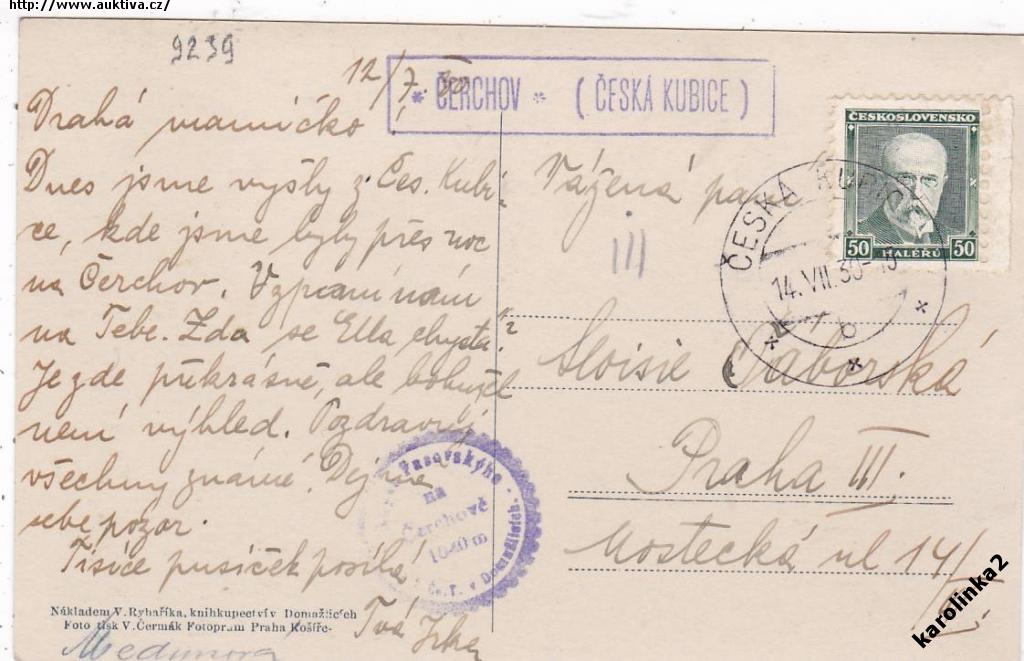 http://www.auktiva.cz/
9239
12/7. 30
* ČERCHOV * ( ČESKÁ KUBICE )
ČESKOSLOVENSKO
50 HALÉŘŮ 50
ČESKÁ KUBICE
14. VII. 30 - 
b
Drahá mamičko!
Dnes jsme vyšly z Čes. Kubi-
ce, kde jsme byly přes noc
na Čerchov. Vzpomínám
na Tebe. Zda se Ella chystá?
Je zde překrásně, ale bohužel
není výhled. Pozdravuj
všechny známé. Dej na
sebe pozor.
Tisíce pusiček posílá
Tvá
Vážená paní
III
Aloisie Táborská
Praha III.
Mostecká ul 14/
Pasovského
na
Čerchově
1040 m
Č.T. v Domažlicích.
Nákladem V. Rybaříka, knihkupectví v Domažlicích
Foto tisk V. Čermák Fotoprum Praha Košíře-
karolinka2